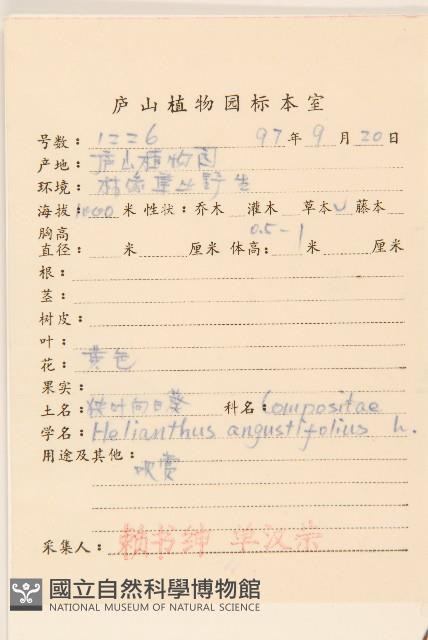 庐山植物园标本室
号数: 1226 97年9月20日
产地: 庐山植物园
环境: 林缘草丛野生
海拔: 1000米 性状: 乔木 灌木 草本✓ 藤本
胸高
直径: 米 厘米 体高: 0.5-1 米 厘米
根:
茎:
树皮:
叶:
花: 黄色
果实:
土名: 狭叶向日葵 科名: Compositae
学名: Helianthus angustifolius L.
用途及其他:
观赏
采集人: 赖书绅 单汉荣
國立自然科學博物館
NATIONAL MUSEUM OF NATURAL SCIENCE